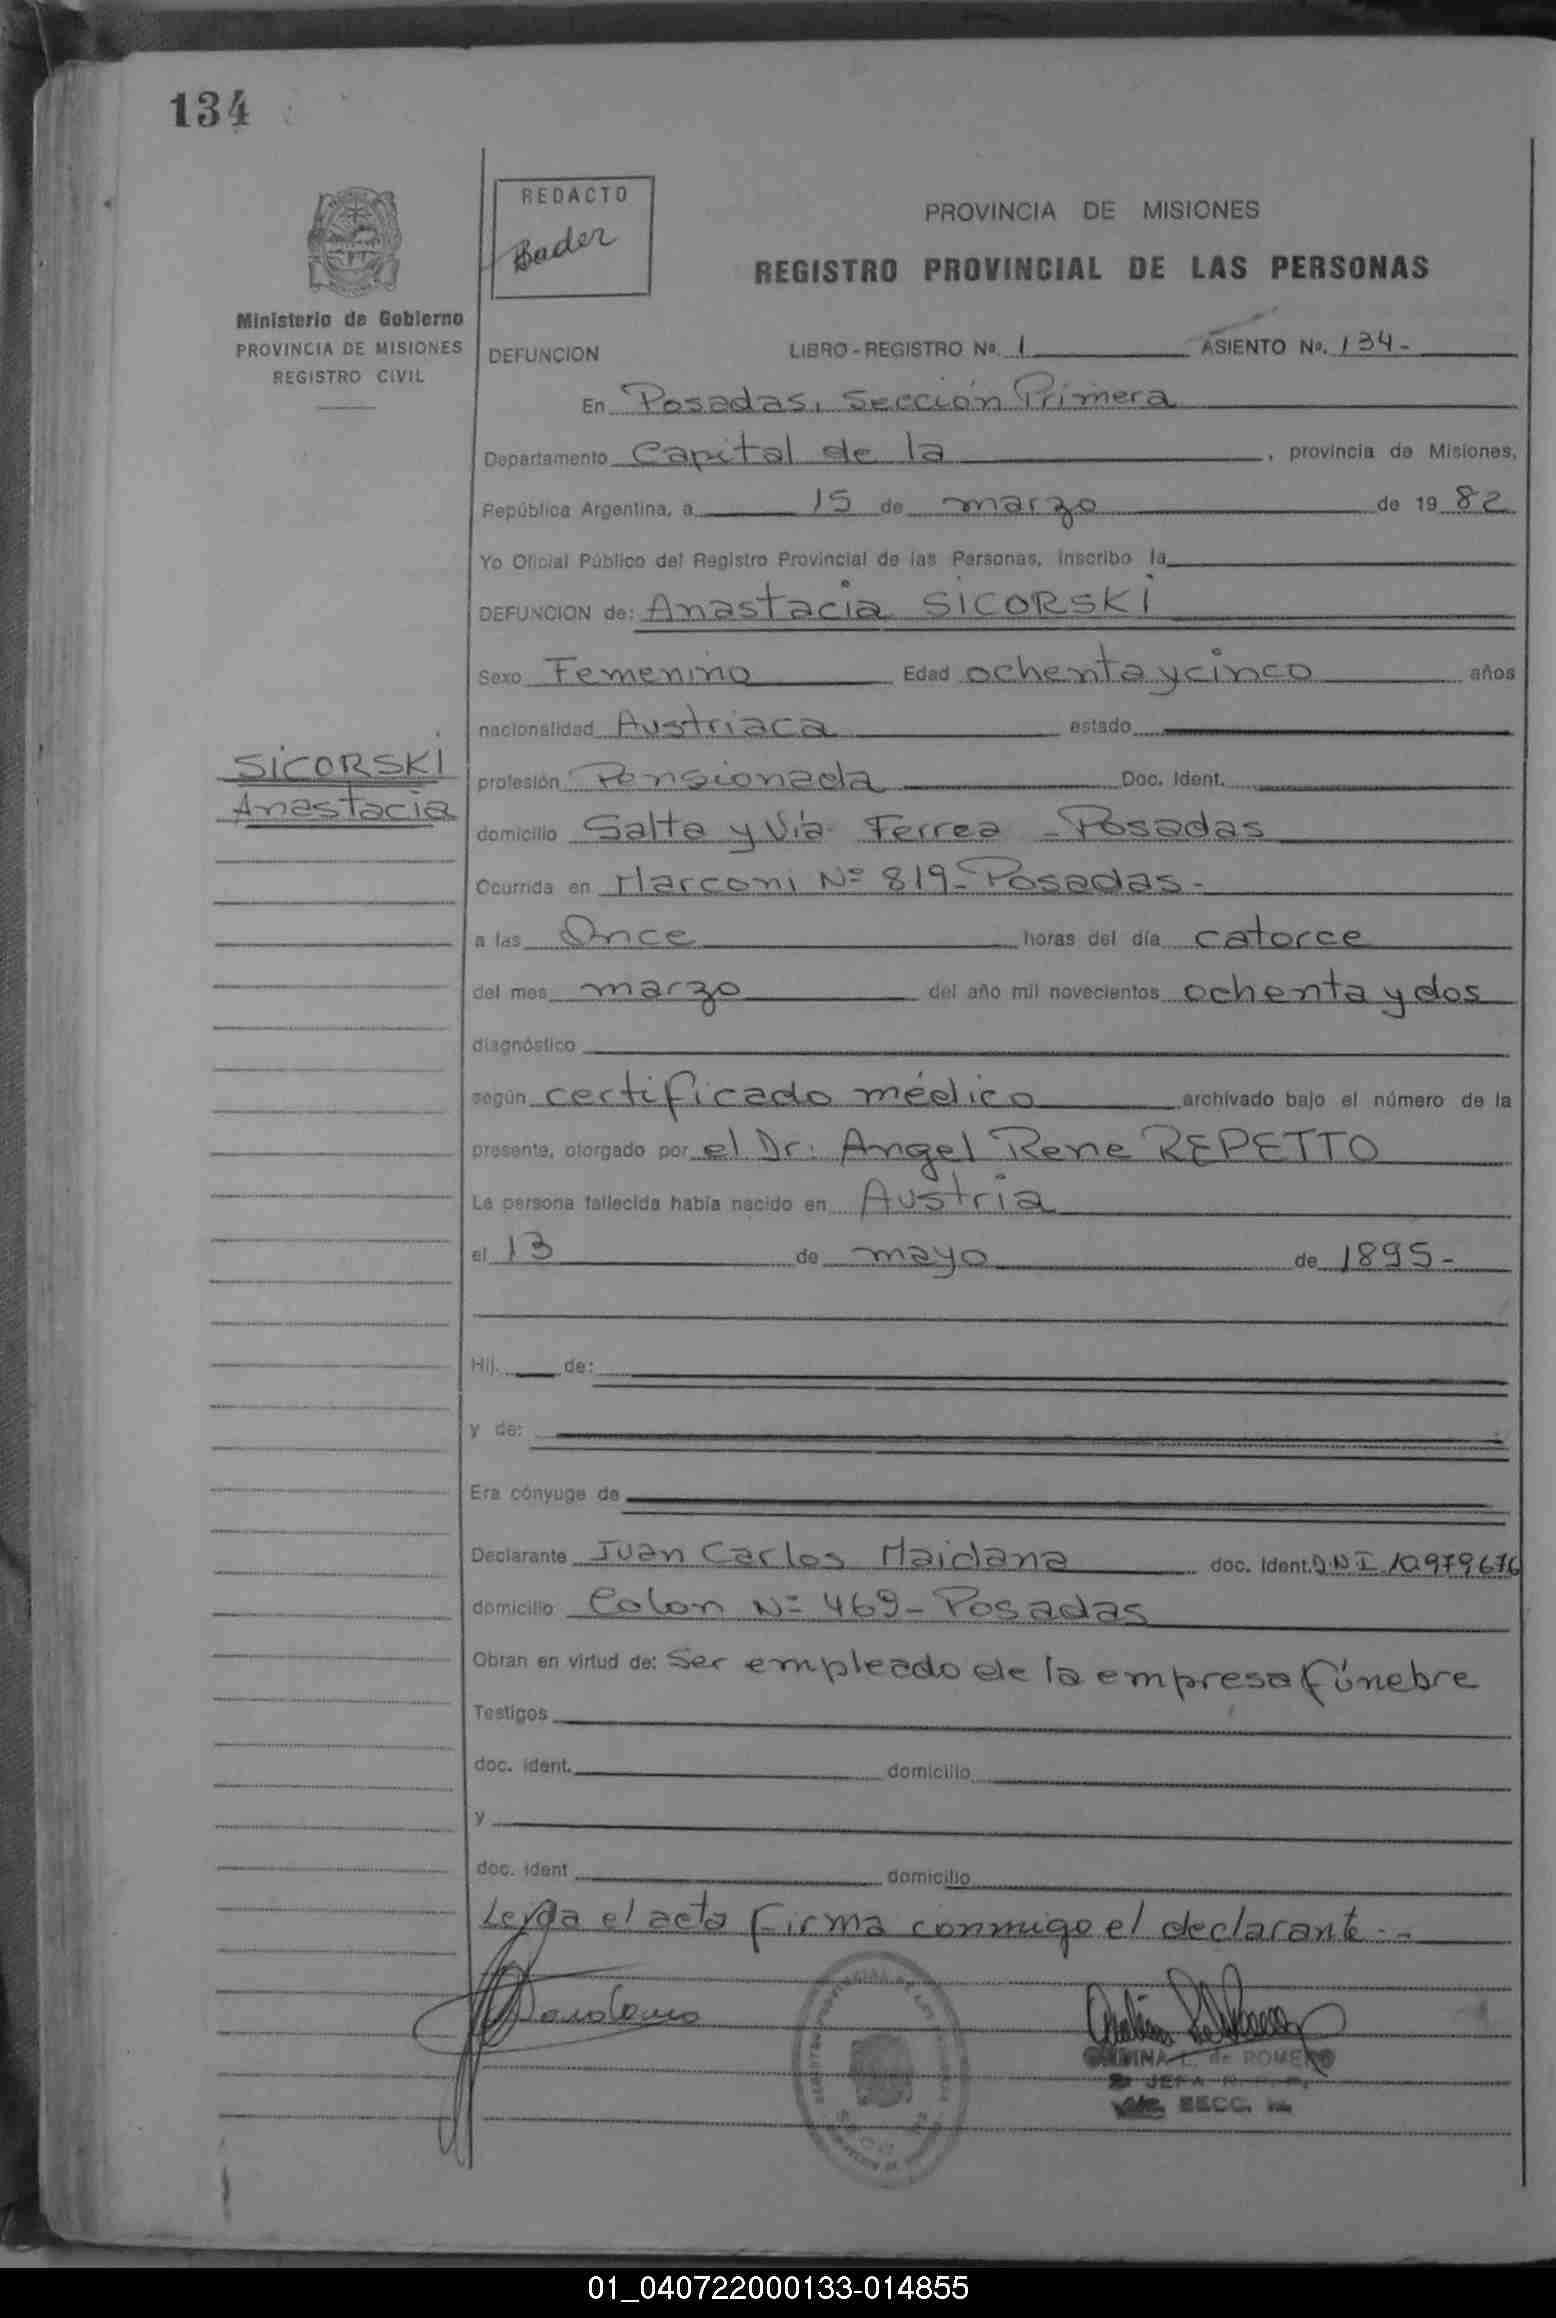 134
REDACTO
Bader
PROVINCIA DE MISIONES
REGISTRO PROVINCIAL DE LAS PERSONAS
Ministerio de Gobierno
PROVINCIA DE MISIONES
REGISTRO CIVIL
DEFUNCION LIBRO - REGISTRO No. 1 ASIENTO No. 134-
En Posadas, Sección Primera
Departamento Capital de la , provincia de Misiones,
República Argentina, a 15 de marzo de 19 82
Yo Oficial Público del Registro Provincial de las Personas, inscribo la
DEFUNCION de: Anastacia SICORSKI
Sexo Femenino Edad ochenta y cinco años
nacionalidad Austriaca estado
SICORSKI
Anastacia
profesión Pensionada Doc. Ident.
domicilio Salta y Vía Ferrea - Posadas
Ocurrida en Marconi Nº 819- Posadas-
a las Once horas del día catorce
del mes marzo del año mil novecientos ochenta y dos
diagnóstico
según certificado médico archivado bajo el número de la
presente, otorgado por el Dr: Angel Rene REPETTO
La persona fallecida había nacido en Austria
el 13 de mayo de 1895-
Hij. de:
y de:
Era cónyuge de
Declarante Juan Carlos Maidana doc. ident. D.N.I 10979676
domicilio Colon Nº 469- Posadas
Obran en virtud de: Ser empleado de la empresa fúnebre
Testigos
doc. ident. domicilio
y
doc. ident domicilio
Leyda el acta firma conmigo el declarante.-
L. de ROMERO
JEFA R. P. P.
SECC. 1a.
01_040722000133-014855